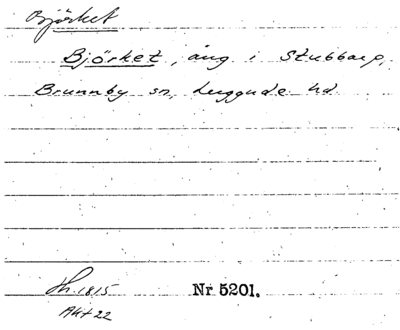 Björket
Björket, äng i Stubbarp,
Brunnby sn, Luggude hd
Sk. 1815 Nr 5201.
Akt 22